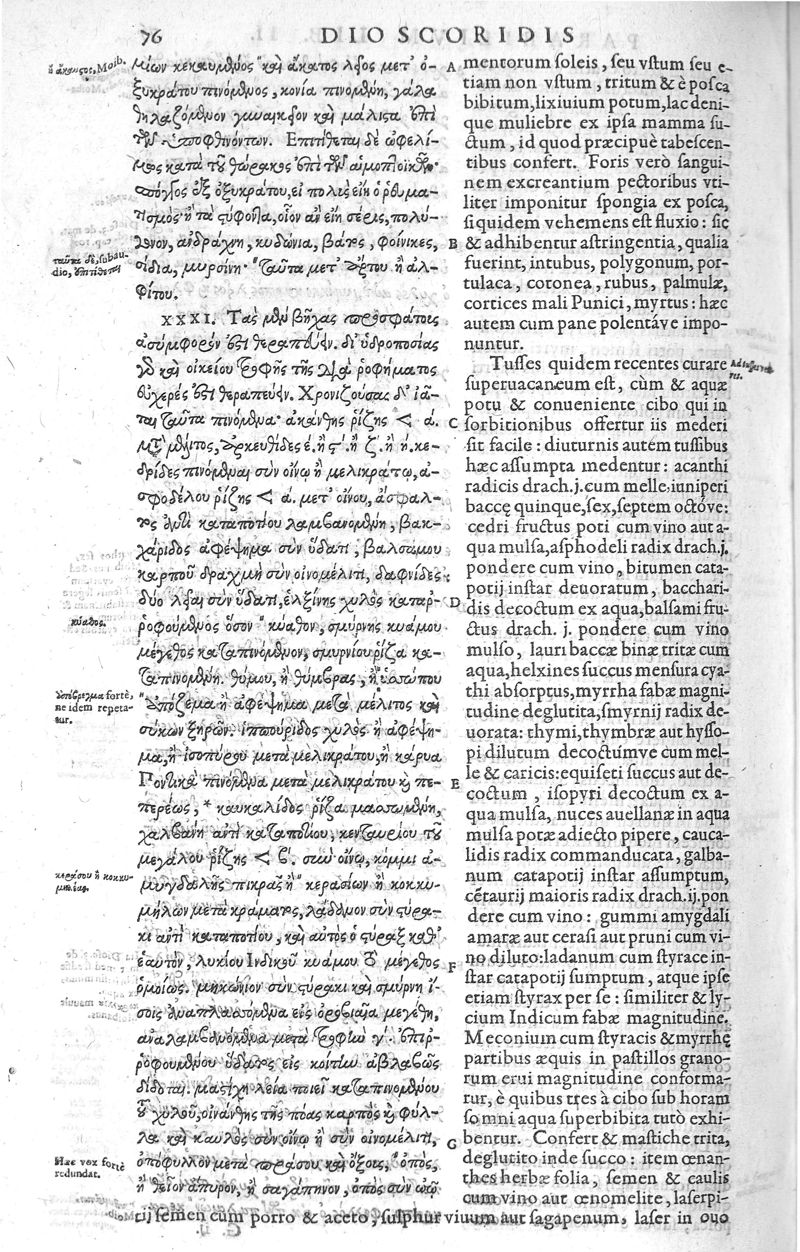 76 DIOSCORIDIS
μίων κεκαυμένος καὶ ἄκαυστος λεῖος μετ' ὀ-
ξυκράτου πινόμενος, κονία πινομένη, γάλα
θηλαζόμενον γυναικεῖον καὶ μάλιστα ἐπὶ
τῶν ὑποφθινόντων. Ἐπιτίθεται δὲ ὠφελί-
μως κατὰ τοῦ θώρακος ἐπὶ τῶν αἱμοπτοϊκῶν·
σπόγγος ἐξ ὀξυκράτου, εἰ πολὺς εἴη ὁ ῥευμα-
τισμὸς ἢ τὰ στύφοντα, οἷον ἂν εἴη σέρις, πολύ-
γονον, ἀνδράχνη, κυδώνια, βάτος, φοίνικες,
σίδια, μυρσίνη· ταῦτα μετ' ἄρτου ἢ ἀλ-
φίτου.
XXXI. Τὰς μὲν βῆχας προσφάτους
ἀσύμφορόν ἐστι θεραπεύειν. δι' ὑδροποσίας
γὰρ καὶ οἰκείου τροφῆς τῆς διὰ ῥοφήματος
εὐχερές ἐστι θεραπεύειν. Χρονιζούσας δ' ἰᾶ-
ται ταῦτα πινόμενα· ἀκάνθης ῥίζης < ά.
μετὰ μέλιτος, ἀρκευθίδες έ. ἢ ϛ΄. ἢ ζ΄. ἢ ή. κε-
δρίδες πινόμεναι σὺν οἴνῳ ἢ μελικράτῳ, ἀ-
σφοδέλου ῥίζης < ά. μετ' οἴνου, ἄσφαλ-
τος ἀντὶ καταποτίου λαμβανομένη, βακ-
χάριδος ἀφέψημα σὺν ὕδατι, βαλσάμου
καρποῦ δραχμὴ σὺν οἰνομέλιτι, δαφνίδες
δύο λεῖαι σὺν ὕδατι, ἑλξίνης χυλὸς καταρ-
ροφούμενος ὅσον κύαθον, σμύρνης κυάμου
μέγεθος καταπινόμενον, σμυρνίου ῥίζα κα-
ταπινομένη. θύμου, ἢ θύμβρας, ἢ ὑσώπου
ἀπόζεμα ἢ ἀφέψημα μετὰ μέλιτος καὶ
σύκων ξηρῶν. ἱππουρίδος χυλὸς ἢ ἀφέψη-
μα, ἢ ἰσοπύρου μετὰ μελικράτου, ἢ κάρυα
Ποντικὰ πινόμενα μετὰ μελικράτου καὶ πε-
πέρεως, * καυκαλίδος ῥίζα μασωμένη,
χαλβάνη ἀντὶ καταποτίου, κενταυρίου τοῦ
μεγάλου ῥίζης < β. σὺν οἴνῳ, κόμμι ἀ-
μυγδαλῆς πικρᾶς ἢ κερασίων ἢ κοκκυ-
μήλων μετὰ κράματος, λάδανον σὺν στύρα-
κι ἀντὶ καταποτίου, καὶ αὐτὸς ὁ στύραξ καθ'
ἑαυτόν, λυκίου Ἰνδικοῦ κυάμου τὸ μέγεθος
ὁμοίως. μηκώνιον σὺν στύρακι καὶ σμύρνῃ ἴ-
σοις ἀναπλασσόμενα εἰς ὀροβιαῖα μεγέθη,
ἀναλαμβανόμενα μετὰ τροφὴν γ΄. ἐπιρ-
ροφουμένου ὕδατος εἰς κοίτην ἀβλαβῶς
δίδοται. μαστίχη λεία ποιεῖ καταπινομένου
τοῦ χυλοῦ, οἰνάνθης τῆς πόας καρπὸς καὶ φύλ-
λα καὶ καυλὸς σὺν οἴνῳ ἢ σὺν οἰνομέλιτι,
ὀπόφυλλον μετὰ πράσου καὶ ὄξους, ὀπὸς,
ἢ θεῖον ἄπυρον, ἢ σαγάπηνον, ὀπὸς σὺν ὠῷ
ἢ ἄκαυστος, Moib.
ταῦτα δὲ, subau-
dio, ἐπιτίθεται
κύαθος.
forté,
ne idem repeta-
tur.
κεράσου ἢ κοκκυ-
μηλέας.
Hæc vox fortè
redundat.
A
B
C
D
E
F
G
mentorum soleis, seu vstum seu e-
tiam non vstum, tritum & è posca
bibitum, lixiuium potum, lac deni-
que muliebre ex ipsa mamma su-
ctum, id quod præcipuè tabescen-
tibus confert. Foris verò sangui-
nem excreantium pectoribus vti-
liter imponitur spongia ex posca,
siquidem vehemens est fluxio: sic
& adhibentur astringentia, qualia
fuerint, intubus, polygonum, por-
tulaca, coronea, rubus, palmulæ,
cortices mali Punici, myrtus: hæc
autem cum pane polentáve impo-
nuntur.
Tusses quidem recentes curare
superuacaneum est, cùm & aquæ
potu & conueniente cibo qui in
sorbitionibus offertur iis mederi
sit facile: diuturnis autem tussibus
hæc assumpta medentur: acanthi
radicis drach. j. cum melle, iuniperi
baccę quinque, sex, septem octóve:
cedri fructus poti cum vino aut a-
qua mulsa, asphodeli radix drach. j.
pondere cum vino, bitumen cata-
potij instar deuoratum, bacchari-
dis decoctum ex aqua, balsami fru-
ctus drach. j. pondere cum vino
mulso, lauri baccæ binæ tritæ cum
aqua, helxines succus mensura cya-
thi absorptus, myrrha fabæ magni-
tudine deglutita, smyrnij radix de-
uorata: thymi, thymbræ aut hysso-
pi dilutum decoctúmve cum mel-
le & caricis: equiseti succus aut de-
coctum, isopyri decoctum ex a-
qua mulsa, nuces auellanæ in aqua
mulsa potæ adiecto pipere, cauca-
lidis radix commanducata, galba-
num catapotij instar assumptum,
cētaurij maioris radix drach. ij. pon
dere cum vino: gummi amygdali
amaræ aut cerasi aut pruni cum vi-
no diluto: ladanum cum styrace in-
star catapotij sumptum, atque ipse
etiam styrax per se: similiter & ly-
cium Indicum fabæ magnitudine.
Meconium cum styracis & myrrhę
partibus æquis in pastillos grano-
rum erui magnitudine conforma-
tur, è quibus tres à cibo sub horam
somni aqua superbibita tutò exhi-
bentur. Confert & mastiche trita,
deglutito inde succo: item œnan-
thes herbæ folia, semen & caulis
cum vino aut œnomelite, laserpi-
tij semen cum porro & aceto, sulphur viuum aut sagapenum, laser in ouo